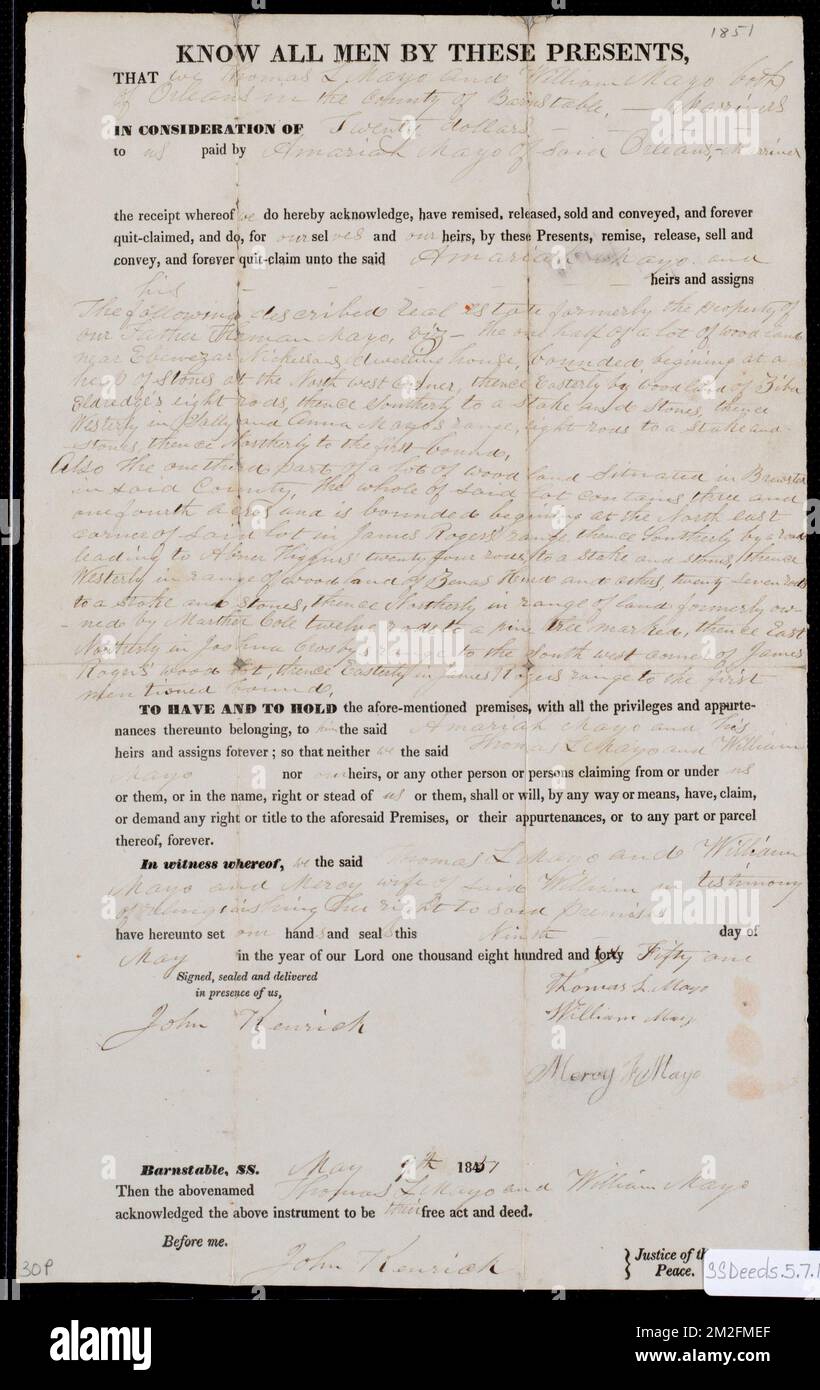 1851
KNOW ALL MEN BY THESE PRESENTS,
THAT we Thomas L Mayo and William Mayo both
of Orleans in the County of Barnstable, — Marriners
IN CONSIDERATION OF Twenty dollars — — — —
to us paid by Amariah Mayo of said Orleans, — Marriner
the receipt whereof we do hereby acknowledge, have remised, released, sold and conveyed, and forever
quit-claimed, and do, for our selves and our heirs, by these Presents, remise, release, sell and
convey, and forever quit-claim unto the said Amariah Mayo and
his — — — — — heirs and assigns
The following described real estate formerly the property of
our Father Mayo, viz — the one half of a lot of wood land
near Ebenezar Nickersons dwelling house, bounded, begining at a
heap of stones at the North west corner, thence Easterly by wood land of Ziba
Eldredge's eight rods, thence Southerly to a Stake and Stones, thence
Westerly in Sally and Anna Mayo's range, eight rods to a Stake and
Stones, thence Northerly to the first bound,
Also the one third part of a lot of wood land Situated in Brewster
in said County, the whole of said lot contains three and
one fourth acres and is bounded begining at the North east
corner of said lot in James Rogers' range thence Southerly by a road
leading to Abner Higgins' twenty four rods to a stake and stones, thence
Westerly in range of wood land of Zenas and twenty seven rods
to a stake and stones, thence Northerly in range of land formerly ow-
ned by Marther Cole twelve rods to a pine tree marked, thence East
Northerly in Joshua Crosby's range to the South west corner of James
Rogers' wood lot, thence Easterly in James Rogers range to the first
mentioned bound.
TO HAVE AND TO HOLD the afore-mentioned premises, with all the privileges and appurte-
nances thereunto belonging, to him the said Amariah Mayo and his
heirs and assigns forever; so that neither we the said Thomas L Mayo and William
Mayo nor our heirs, or any other person or persons claiming from or under us
or them, or in the name, right or stead of us or them, shall or will, by any way or means, have, claim,
or demand any right or title to the aforesaid Premises, or their appurtenances, or to any part or parcel
thereof, forever.
In witness whereof, we the said Thomas L Mayo and William
Mayo and Mercy wife of said William in testimony
of relinquishing her right to said premises
have hereunto set our hands and seals this Ninth — day of
May in the year of our Lord one thousand eight hundred and forty Fifty one
Signed, sealed and delivered
in presence of us,
Thomas L Mayo
William Mayo
John Kenrick
Mercy Mayo
Barnstable, SS. May 9th 1851
Then the abovenamed Thomas L Mayo and William Mayo
acknowledged the above instrument to be their free act and deed.
Before me.
John Kenrick
} Justice of th
Peace.
30P
SSDeeds.5.7.1
alamy
Image ID: 2M2FMEF
www.alamy.com